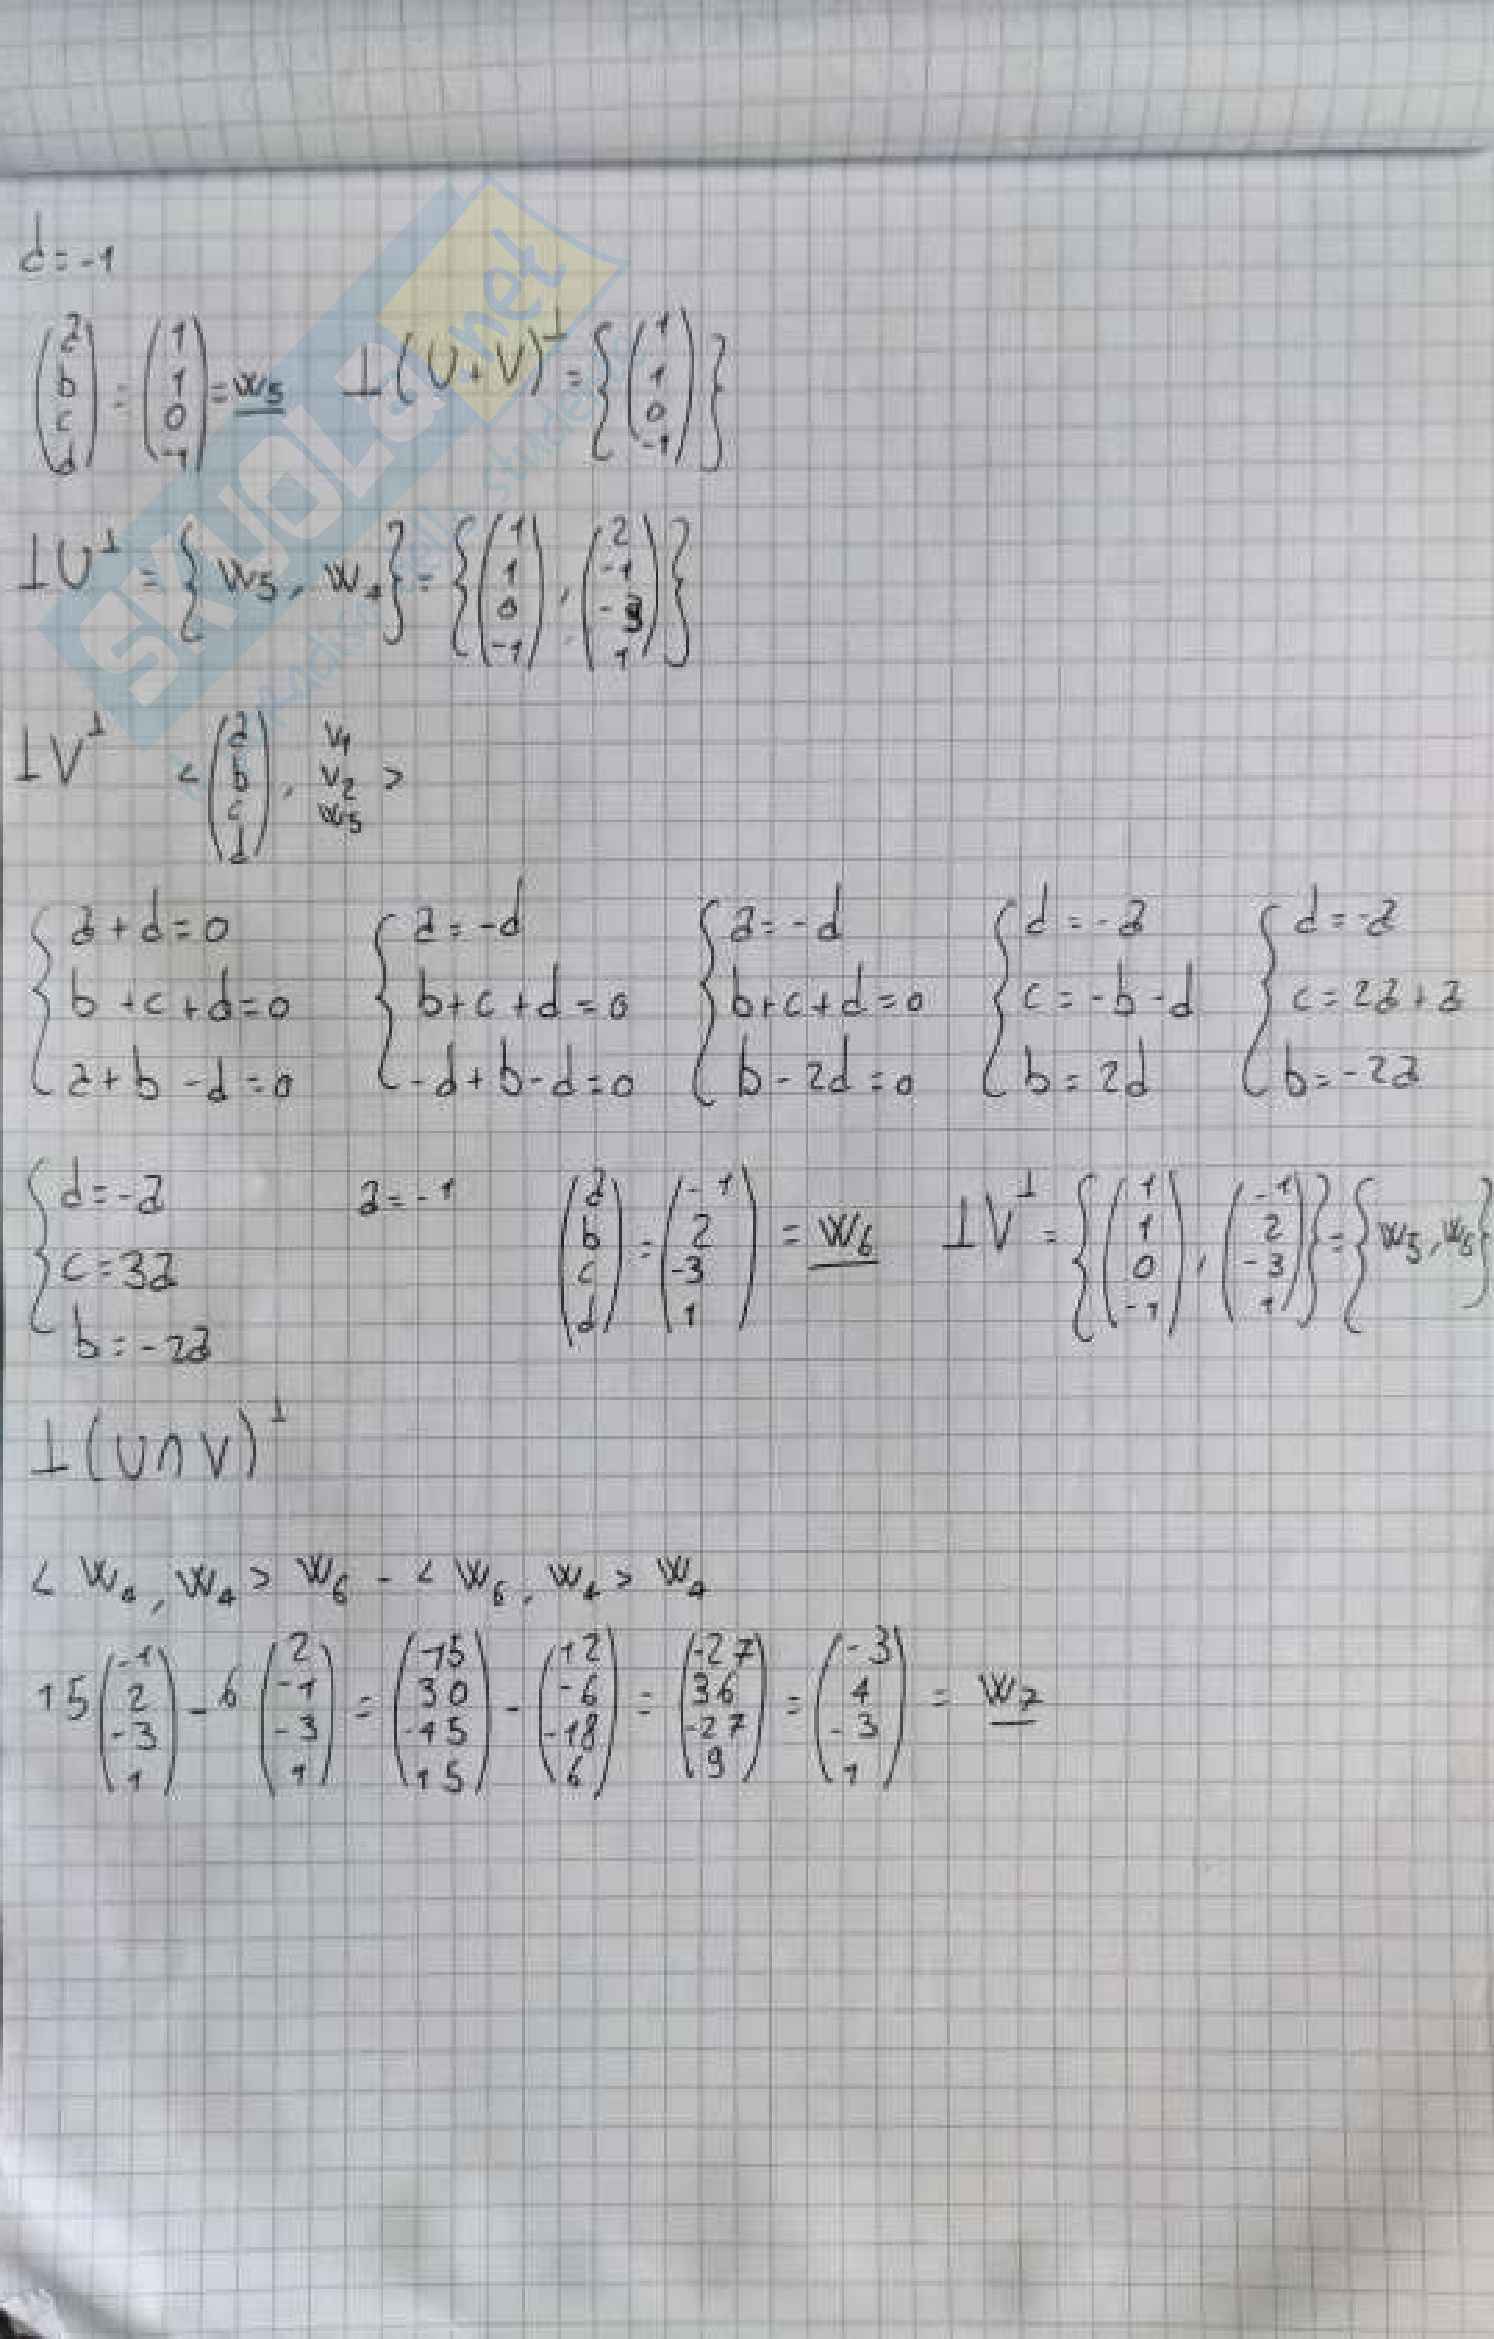 d = -1
(a b c d) = (1 1 0 -1) = w5 ⊥(U+V)^⊥ = {(1 1 0 -1)}
⊥U^⊥ = {w5, w4} = {(1 1 0 -1), (2 -1 -3 1)}
⊥V^⊥ <(a b c d), v1 v2 w5>
{a+d=0 {a=-d {a=-d {d=-a {d=-a
b+c+d=0 b+c+d=0 b+c+d=0 c=-b-d c=2a+a
a+b-d=0 -d+b-d=0 b-2d=0 b=2d b=-2a
{d=-a c=3a b=-2a a=-1 (a b c d) = (-1 2 -3 1) = w6 ⊥V^⊥ = {(1 1 0 -1), (-1 2 -3 1)} = {w5, w6}
⊥(U∩V)^⊥
<w4, w4> w6 - <w6, w4> w4
15 (-1 2 -3 1) - 6 (2 -1 -3 1) = (-15 30 -45 15) - (12 -6 -18 6) = (-27 36 -27 9) = (-3 4 -3 1) = w7
SKUOLA.net